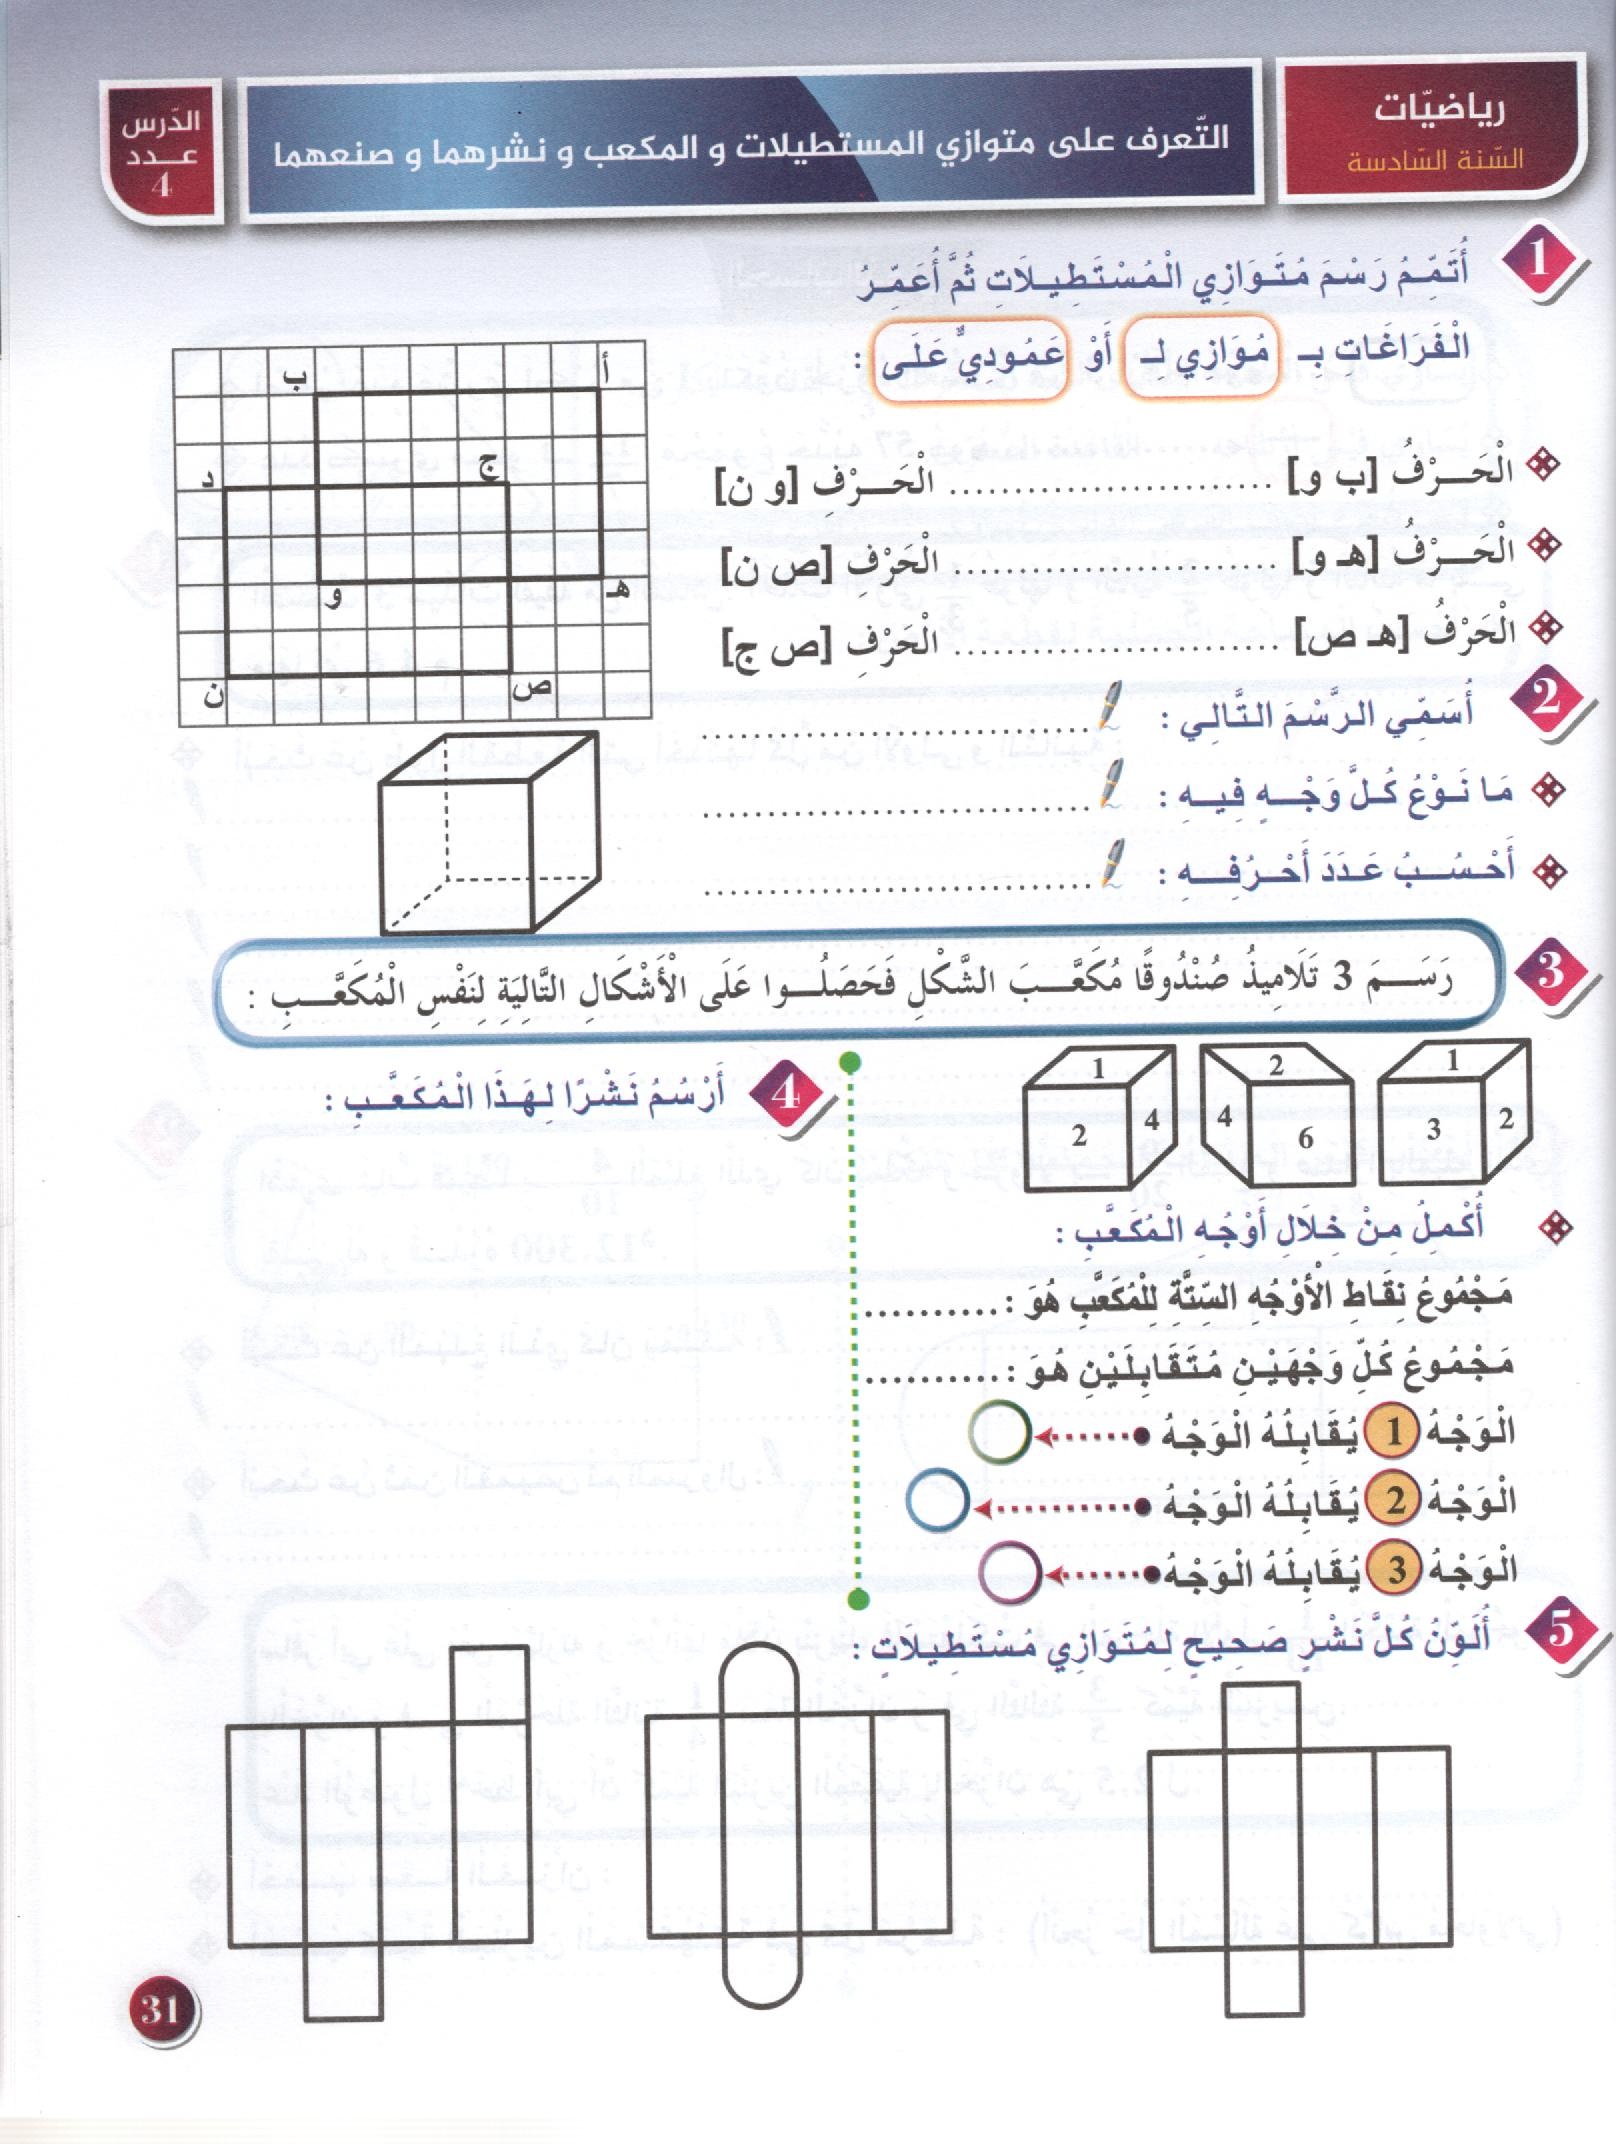 رياضيّات
السّنة السّادسة
التّعرف على متوازي المستطيلات و المكعب و نشرهما و صنعهما
الدّرس
عـــدد
4
1 أُتَمِّـمُ رَسْـمَ مُتَـوَازِي الْمُسْـتَطِيـلَاتِ ثُمَّ أُعَمِّـرُ
الْفَرَاغَـاتِ بـ مُوَازِي لـ أَوْ عَمُودِيٌّ عَلَى :
الْحَـــرْفُ [ب و] ........................ الْحَـــرْفِ [و ن]
الْحَـــرْفُ [هـ و] ........................ الْحَرْفِ [ص ن]
الْحَرْفُ [هـ ص] ........................ الْحَرْفِ [ص ج]
أ
ب
ج
د
هـ
و
ص
ن
2 أُسَمِّـي الـرَّسْـمَ الـتَّـالِـي : ..............................
مَا نَـوْعُ كُـلَّ وَجْــهٍ فِيـهِ : ..............................
أَحْـسُــبُ عَـدَدَ أَحْـرُفِـــهِ : ..............................
3 رَسَـــمَ 3 تَلَامِيذُ صُنْدُوقًا مُكَعَّــبَ الشَّكْلِ فَحَصَلُـــوا عَلَى الْأَشْكَالِ التَّالِيَةِ لِنَفْسِ الْمُكَعَّـــبِ :
1
3
2
2
4
6
1
2
4
أُكْمِلُ مِنْ خِلَالِ أَوْجُهِ الْمُكَعَّبِ :
مَجْمُوعُ نِقَاطِ الْأَوْجُهِ السِّتَّةِ لِلْمَكَعَّبِ هُوَ : ..........
مَجْمُوعُ كُلِّ وَجْهَيْنِ مُتَقَابِلَيْنِ هُوَ : ..........
الْوَجْهُ 1 يُقَابِلُهُ الْوَجْهُ
الْوَجْهُ 2 يُقَابِلُهُ الْوَجْهُ
الْوَجْهُ 3 يُقَابِلُهُ الْوَجْهُ
4 أَرْسُمُ نَشْرًا لِهَذَا الْمُكَعَّـبِ :
5 أُلَوِّنُ كُلَّ نَشْرٍ صَحِيحٍ لِمَتَوَازِي مُسْتَطِيلَاتٍ :
31